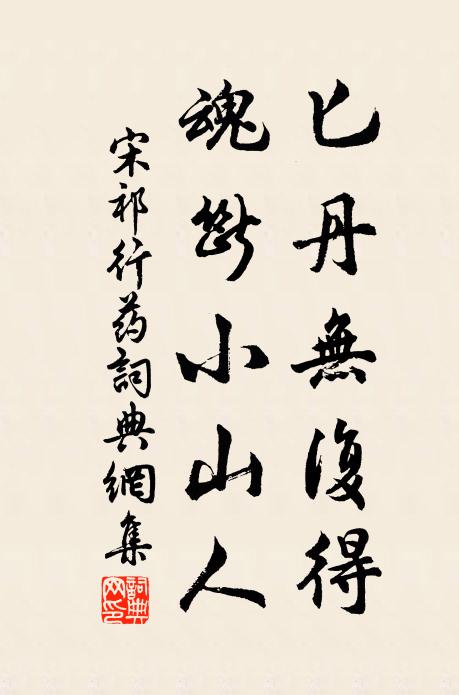 匕丹無復得
魂斷小山人
宋祁行药詞典網集
詞典网印